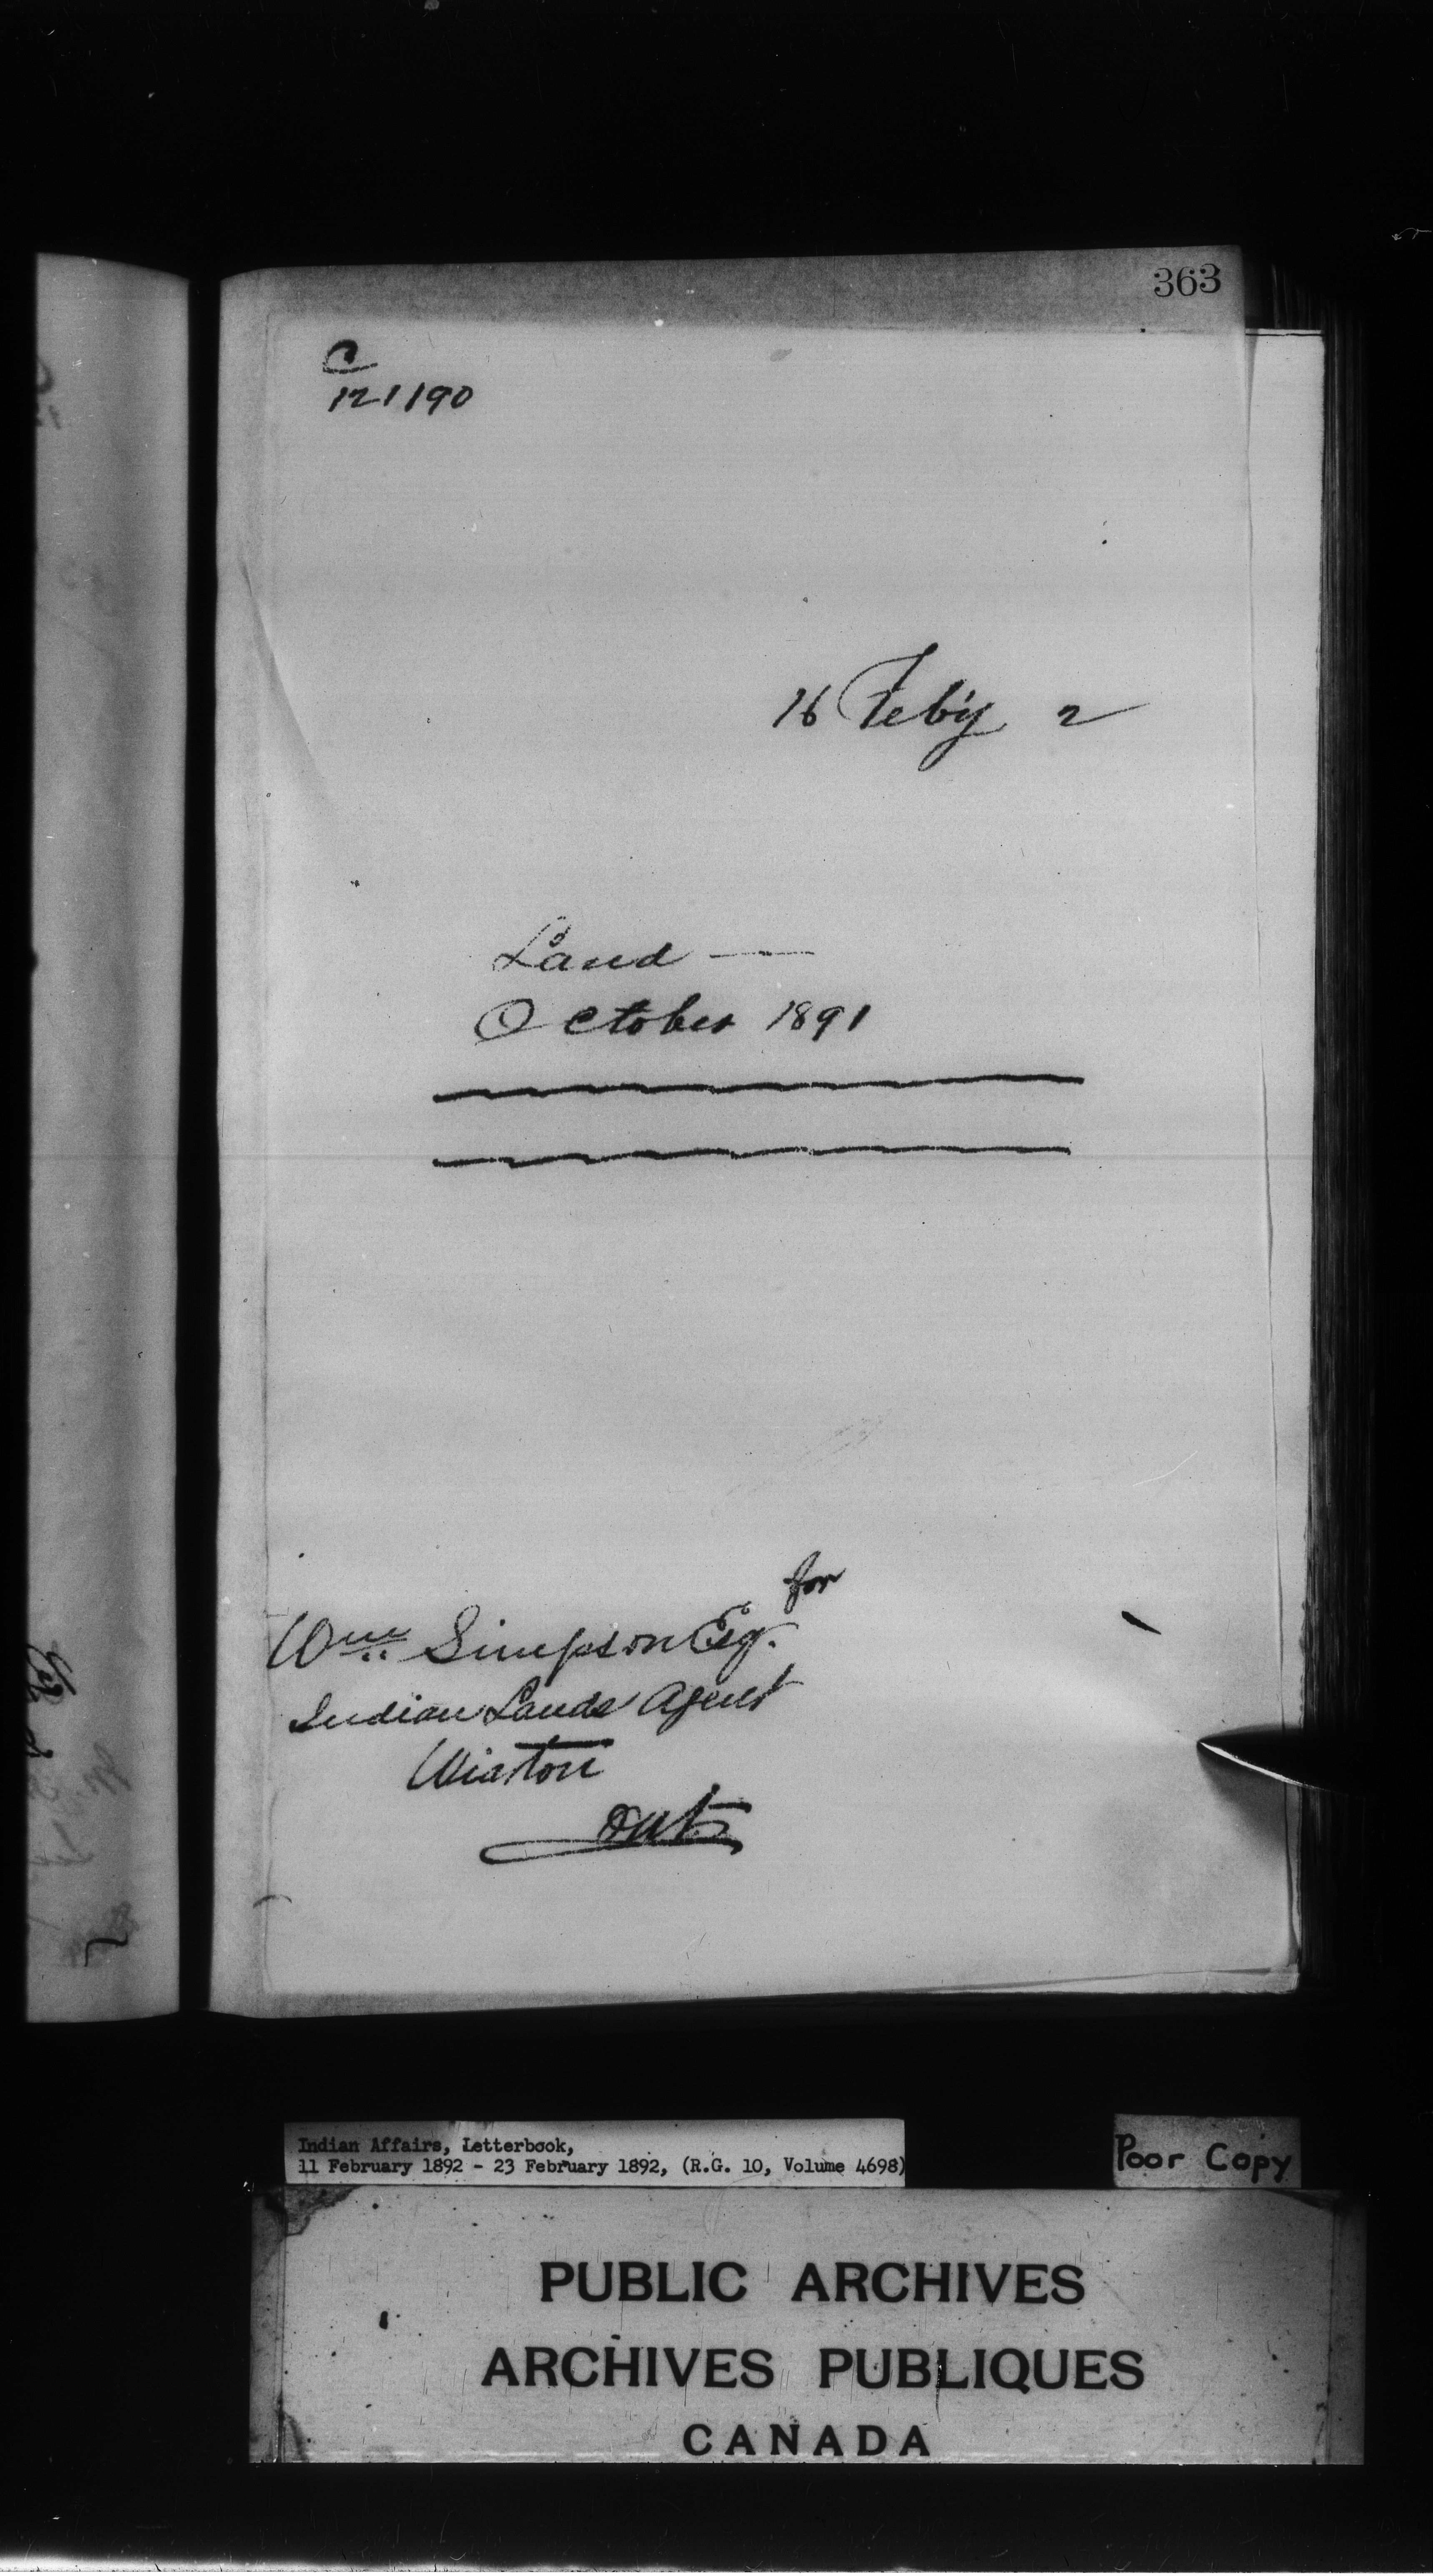 363
C
121190
16 Feb'y 2
Land —
October 1891
for
Wm Simpson Esq.
Indian Lands Agent
Wiarton
Ont.
Indian Affairs, Letterbook,
11 February 1892 - 23 February 1892, (R.G. 10, Volume 4698)
Poor Copy
PUBLIC ARCHIVES
ARCHIVES PUBLIQUES
CANADA